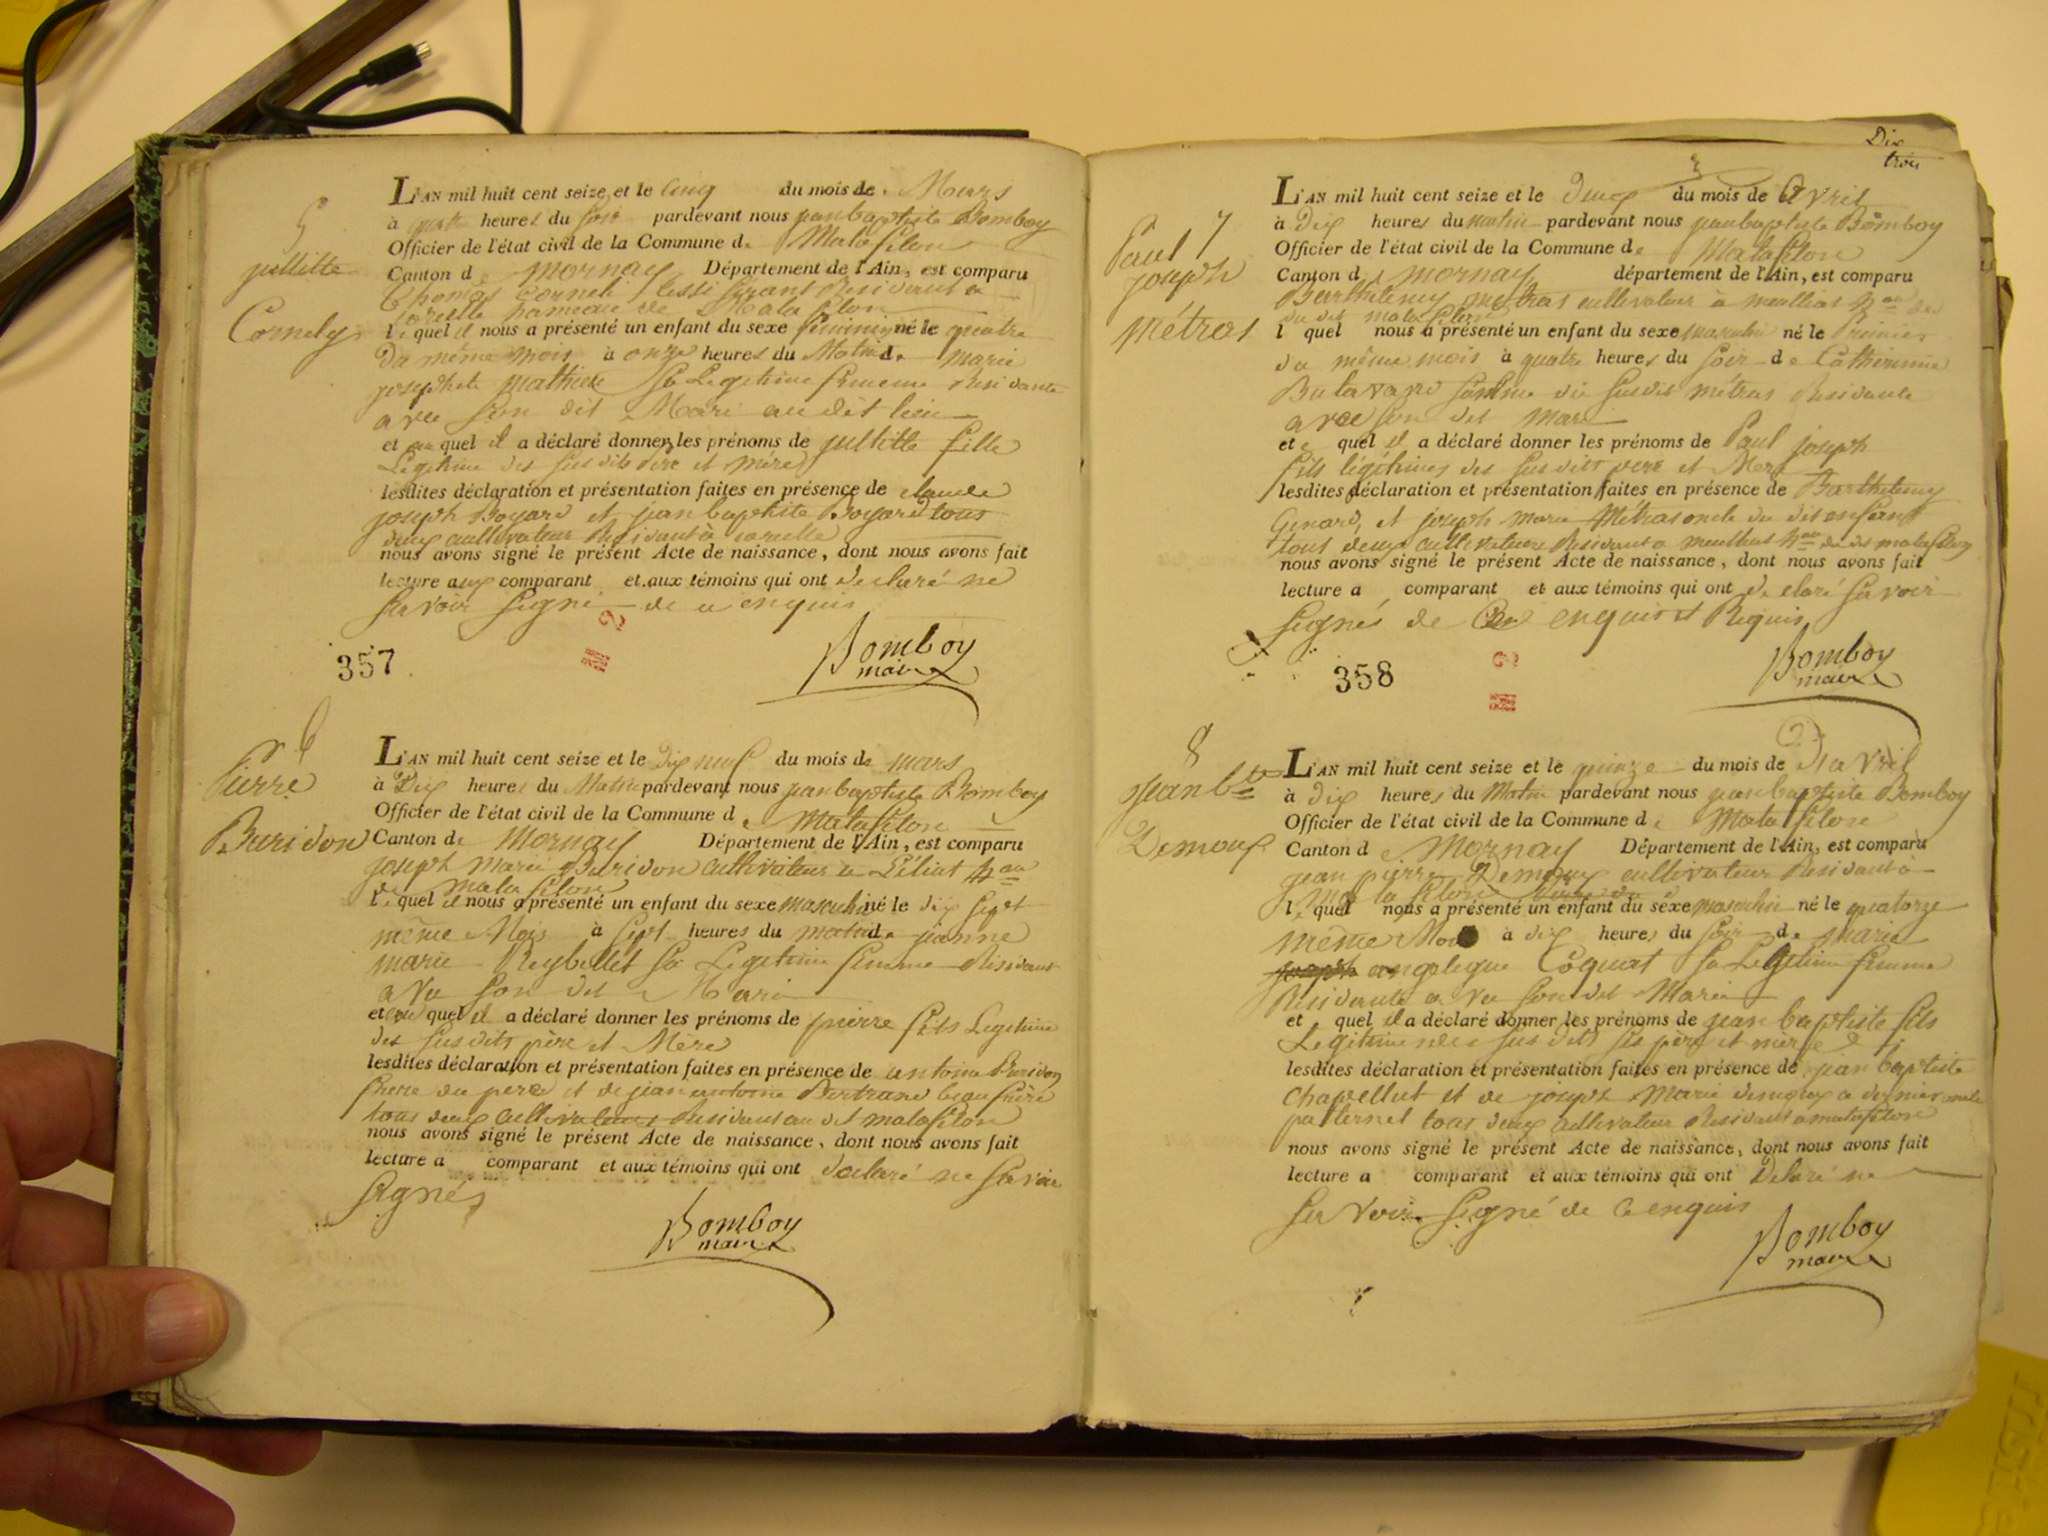 5
jullitte
Cornely
L'AN mil huit cent seize et le cinq du mois de Mars
à quatre heures du soir pardevant nous jean baptiste Bomboy
Officier de l'état civil de la Commune de Matafelon
Canton de Mornay Département de l'Ain, est comparu
Thomas Corneli Residant a
hameau de Matafelon
lequel il nous a présenté un enfant du sexe feminin né le quatre
du même mois à onze heures du Matin de marie
josephete mathieu sa Legitime femme Residante
avec son dit Mari au dit lieu
et auquel il a déclaré donner les prénoms de jullitte fille
Legitime des susdits père et mère
lesdites déclaration et présentation faites en présence de claude
joseph Boyard et jean baptiste Boyard tous
deux cultivateur Residant à
nous avons signé le présent Acte de naissance, dont nous avons fait
lecture aux comparant et aux témoins qui ont déclaré ne
savoir signé de ce enquis
357
2
Bomboy
maire
6
Pierre
Buridon
L'AN mil huit cent seize et le dix neuf du mois de mars
à Dix heures du Matin pardevant nous jean baptiste Bomboy
Officier de l'état civil de la Commune de Matafelon
Canton de Mornay Département de l'Ain, est comparu
joseph marie Buridon cultivateur a h.au
de matafelon
lequel il nous a présenté un enfant du sexe masculin né le dix sept
même Mois à sept heures du matin de jeanne
marie Reybellet sa Legitime femme Residant
avec son dit Mari
et auquel il a déclaré donner les prénoms de pierre fils Legitime
des susdits père et Mère
lesdites déclaration et présentation faites en présence de antoine Buridon
frere du pere et de jean antoine Bertrand beau frère
tous deux cultivateurs Residant au dit matafelon
nous avons signé le présent Acte de naissance, dont nous avons fait
lecture a comparant et aux témoins qui ont declaré ne savoir
signés
Bomboy
maire
Dix
trois
7
Paul
joseph
Métras
L'AN mil huit cent seize et le deux du mois de Avril
à Dix heures du matin pardevant nous jean baptiste Bomboy
Officier de l'état civil de la Commune de Matafelon
Canton de Mornay département de l'Ain, est comparu
Barthelemy metras cultivateur à h.au
du dit matafelon
l quel nous a présenté un enfant du sexe masculin né le Premier
du même mois à quatre heures du soir de Catherinne
Bulavand femme du susdit métras Residante
avec son dit mari
et quel il a déclaré donner les prénoms de Paul joseph
fils légitimes des susdits père et Mere
lesdites déclaration et présentation faites en présence de Barthelemy
Genard, et joseph marie Métras oncle du dit enfant
tous deux cultivateur Residant a h.au du dit matafelon
nous avons signé le présent Acte de naissance, dont nous avons fait
lecture a comparant et aux témoins qui ont declaré savoir
signés de ce enquis et Requis
358
2
Bomboy
maire
8
jean b.te
Demoux
L'AN mil huit cent seize et le quinze du mois de D'avril
à dix heures du Matin pardevant nous jean baptiste Bomboy
Officier de l'état civil de la Commune de Matafelon
Canton de Mornay Département de l'Ain, est comparu
jean pierre Demoux cultivateur Residant à
Matafelon
lequel nous a présenté un enfant du sexe masculin né le quatorze
même Mois à dix heures du soir de marie
angelique Coquat sa Legitime femme
Residante avec son dit Mari
et quel il a déclaré donner les prénoms de jean baptiste fils
Legitime des sus dits père et mère
lesdites déclaration et présentation faites en présence de jean baptiste
Chapellut et de joseph Marie demoux a dernier oncle
paternel tous deux cultivateur Residant a matafelon
nous avons signé le présent Acte de naissance, dont nous avons fait
lecture a comparant et aux témoins qui ont Declaré ne
savoir signé de ce enquis
Bomboy
maire